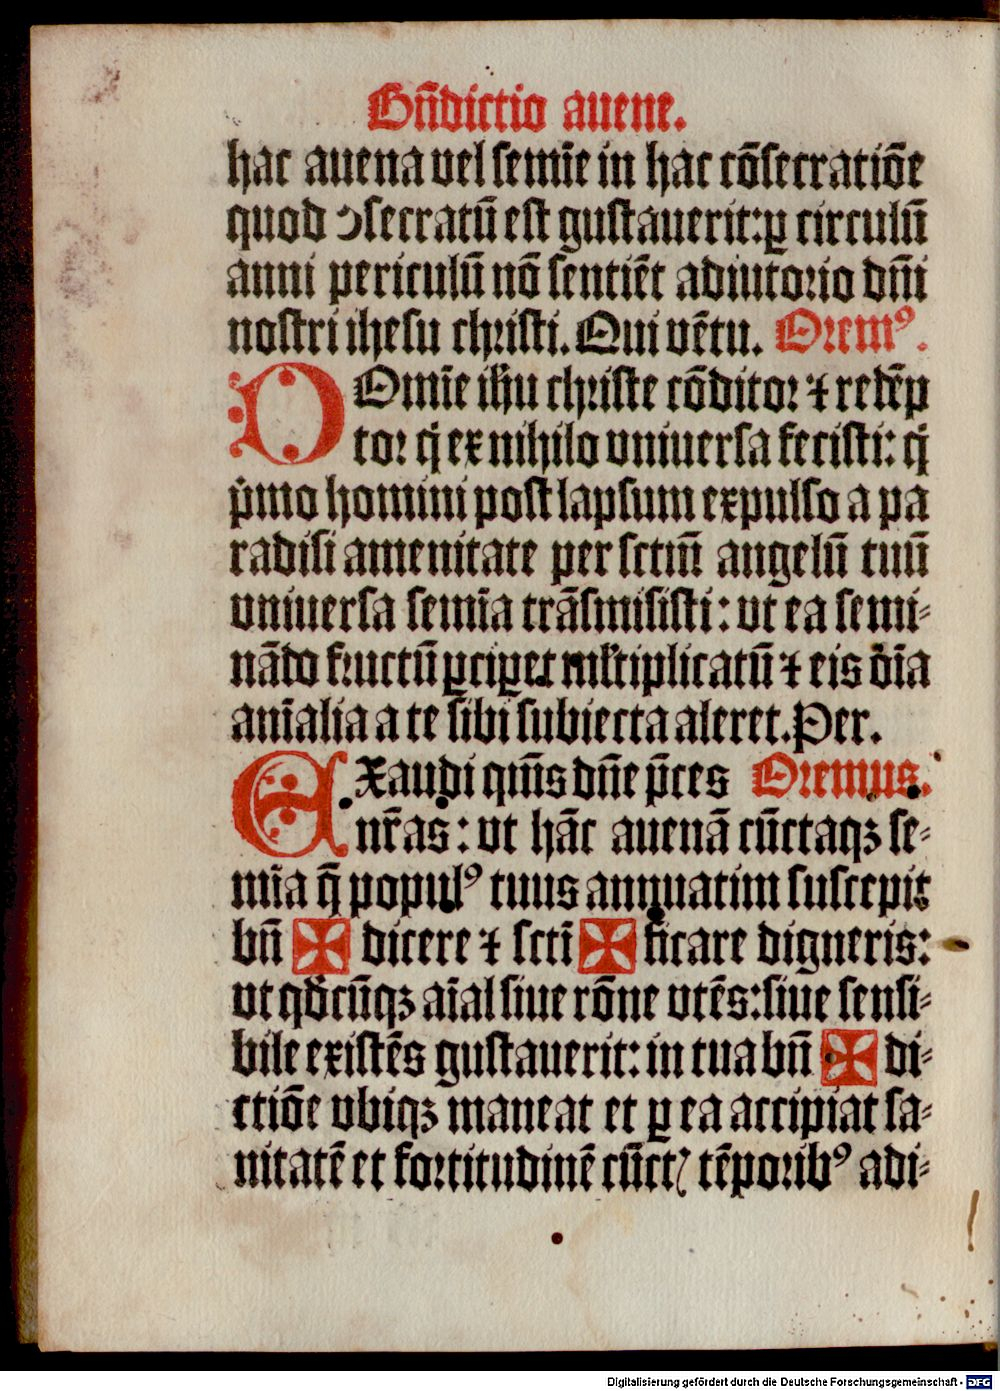 Bn̄dictio auene.
hac auena vel semīe in hac cōsecratiōe
quod ↄsecratū est gustauerit: ꝑ circulū
anni periculū nō sentiēt adiutorio dn̄i
nostri ihesu christi. Qui vētu. Oremꝰ.
DOmīe ih̄u christe cōditor ⁊ redēp
tor q̄ ex nihilo vniuersa fecisti: q̄
p̄mo homini post lapsum expulso a pa
radisi amenitate per sctm̄ angelū tuū
vniuersa semīa trāsmisisti: vt ea semi⸗
nādo fructū ꝑciꝑet ml̓tiplicatū ⁊ eis oīa
anīalia a te sibi subiecta aleret. Per.
EXaudi qm̄s dn̄e p̄ces Oremus.
nr̄as: vt hāc auenā cūctaqꝫ se⸗
mīa q̄ populꝰ tuus annuatim suscepit
bn̄ ✠ dicere ⁊ sctī ✠ ficare digneris:
vt qd̓cūqꝫ aīal siue rōne vtēs: siue sensi⸗
bile existēs gustauerit: in tua bn̄ ✠ di⸗
ctiōe vbiqꝫ maneat et ꝑ ea accipiat sa⸗
nitatē et fortitudinē cūctꝭ tēporibꝰ adi⸗
Digitalisierung gefördert durch die Deutsche Forschungsgemeinschaft - DFG